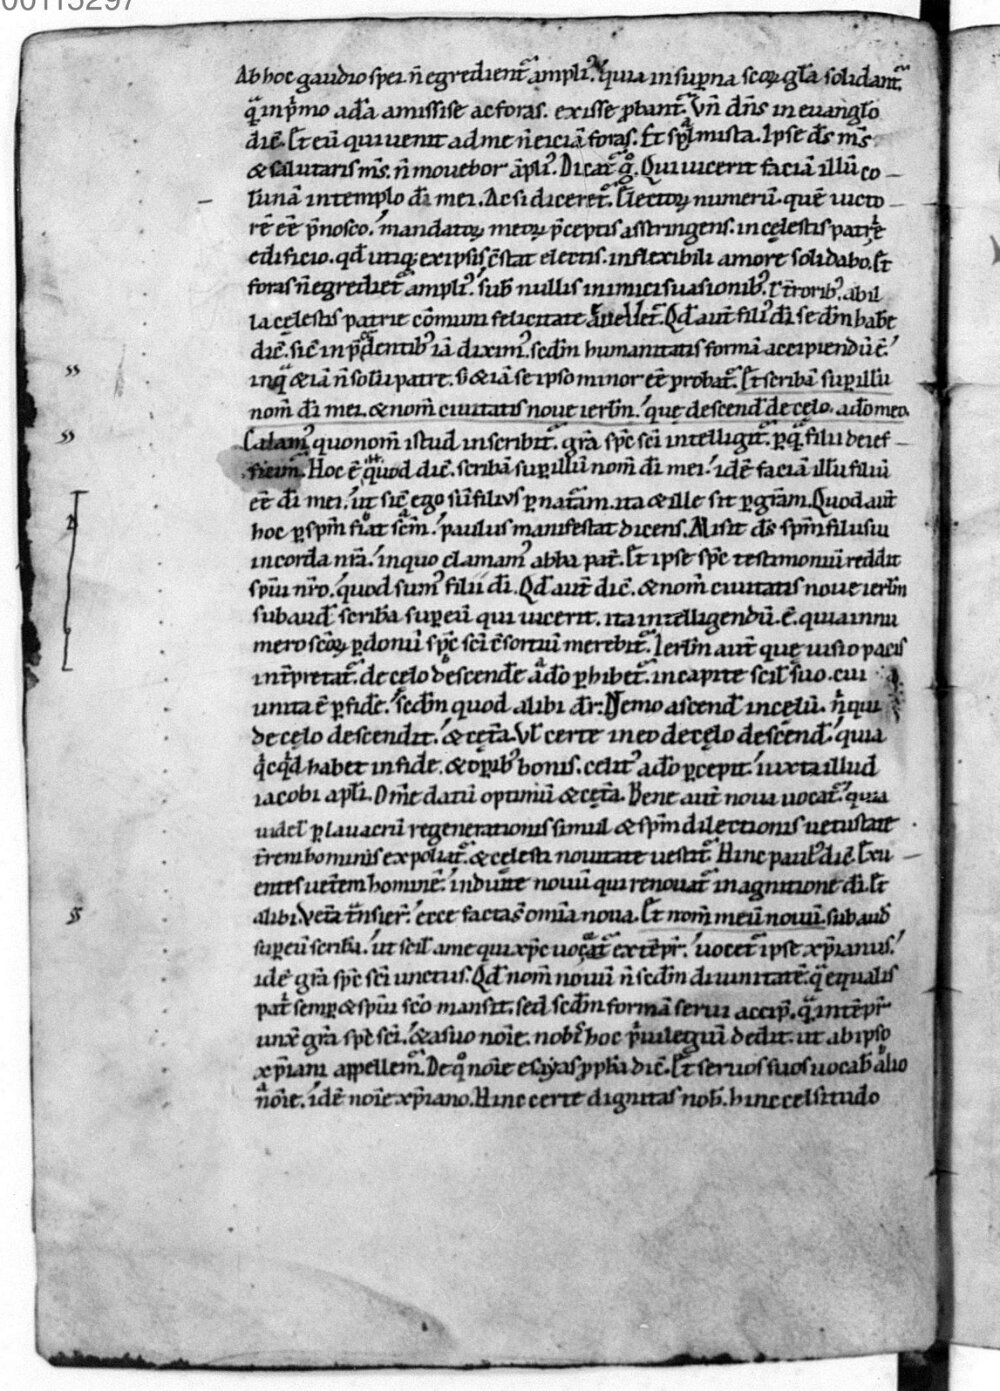 00115297
Ab hoc gaudio spei n̄ egredient᷑ ampli᷒. quia in sup̱na scoꝝ gl̄a solidant᷑.
qͣ in pͥmo adā amisisse ac foras. exisse ꝓbant᷑. Vn̄ dn̄s in euanglo
dic̄. Et eū qui uenit ad me n̄ eiciā foras. Et spl̄mista. Ipse ds̄ m̄s
& salutaris m̄s. n̄ mouebor āpli᷒. Dicat᷑ gͦ. Qui uicerit faciā illū co
lūnā in templo dī mei. Ac si diceret᷑. Electoꝝ numerū. quē uicto
rē eē p̄nosco. mandatoꝝ meoꝝ p̄ceptis asstringens. in cęlestis patrͥę
edificio. qd̄ utiqꝫ ex ipsis c̄stat electis. inflexibili amore solidabo. Et
foras n̄ egrediet᷑ ampli᷒. sub nullis inimici suasionib᷒. l̄ t̄rorib᷒. ab il
la cęlestis patrie cōmuni felicitate Qd̄ aut̄ fili᷒ dī se dm̄ habe
dic̄. sic̄ in p̄cedentib᷒ iā dixim᷒. scdm̄ humanitatis formā accipiendū ē.
in qͣ & iā n̄ solū patre. s; & iā se ipso minor eē probat᷑. Et scribā sup̱ illū
nom̄ dī mei. & nom̄ ciuitatis noue ierl̄m. quę descend̄ de cęlo. a dō meo.
Calam᷒ quo nom̄ istud inscribit᷑. gr̄a spc̄ sc̄i intelligit᷑. p̱ qͣ filii dei ef
ficim᷑. Hoc ē qͥuod dic̄. scribā sup̱ illū nom̄ dī mei. idē faciā illū filiū
eē dī mei. ut sic̄ ego sū filius p̱ natͣam. ita & ille sit p̱ gr̄am. Quod aut̄
hoc p̱ spm̄ fiat sc̄m. paulus manifestat dicens. Misit ds̄ spm̄ filii sui
in corda nr̄a. in quo clamam᷒ abba pat̄. Et ipse spc̄ testimoniū reddit
spiu nr̄o. quod sum᷒ filii dī. Qd̄ aut̄ dic̄. & nom̄ ciuitatis noue ierl̄m
subaud̄ scribā sup̱ eū qui uicerit. ita intelligendū. ē. quia in nu
mero scōꝝ p̱ donū spc̄ sc̄i c̄sortiū merebit᷑. Ierl̄m aut̄ quę uisio pacis
int̄pretat᷑. de cęlo descende a dō ꝓhibet᷑. in capite scil̄ suo. cui
unita ē p̱ fidē. scdm̄ quod alibi dr̄. Nemo ascend̄ in cęlū. nͥ qui
de cęlo descendit. & cęt̄a. Vl̄ certe in eo de cęlo descend̄. quia
qͥcqͥd habet in fide. & op̱ib᷒ bonis. celit᷒ a dō p̱cepit. iuxta illud
iacobi apl̄i. Om̄e datū optimū & cęt̄a. Bene aut̄ noua uocat᷑. quia
uidel̄ p̱ lauacrū regenerationis simul & spm̄ dilectionis uetustate
t̄reni hominis expoliat᷑. & celesti nouitate uestit᷑. Hinc paul᷒ dic̄. Exu
entes uet̄em hominē. induite nouū qui renouat᷑ in agnitione dī. Et
alibi. Vet̄a tͣnsier̄. ecce facta s̄ om̄ia noua. Et nom̄ meū nouū. subaud̄
sup̱ eū scribā. ut scil̄ a me qui xp̄c uocat᷑ ex tēpr̄. uocet᷑ ipse xp̄ianus.
idē gr̄a spc̄ sc̄i unctus. Qd̄ nom̄ nouū n̄ scdm̄ diuinitatē. qͣ equalis
patͥ semp̱ & spiu sc̄o mansit. sed scdm̄ formā serui accip̄. qͣ in tēpr̄
unx̄ gr̄a spc̄ sc̄i. & a suo noīe. nobͥ hoc pͥuilegiū dedit. ut ab ipso
xp̄iani appellem᷑. De qͦ noīe esayas ꝓpha dic̄. Et seruos suos uocab̄ alio
noīe. idē noīe xp̄iano. Hinc certe dignitas nob̄. hinc celsitudo